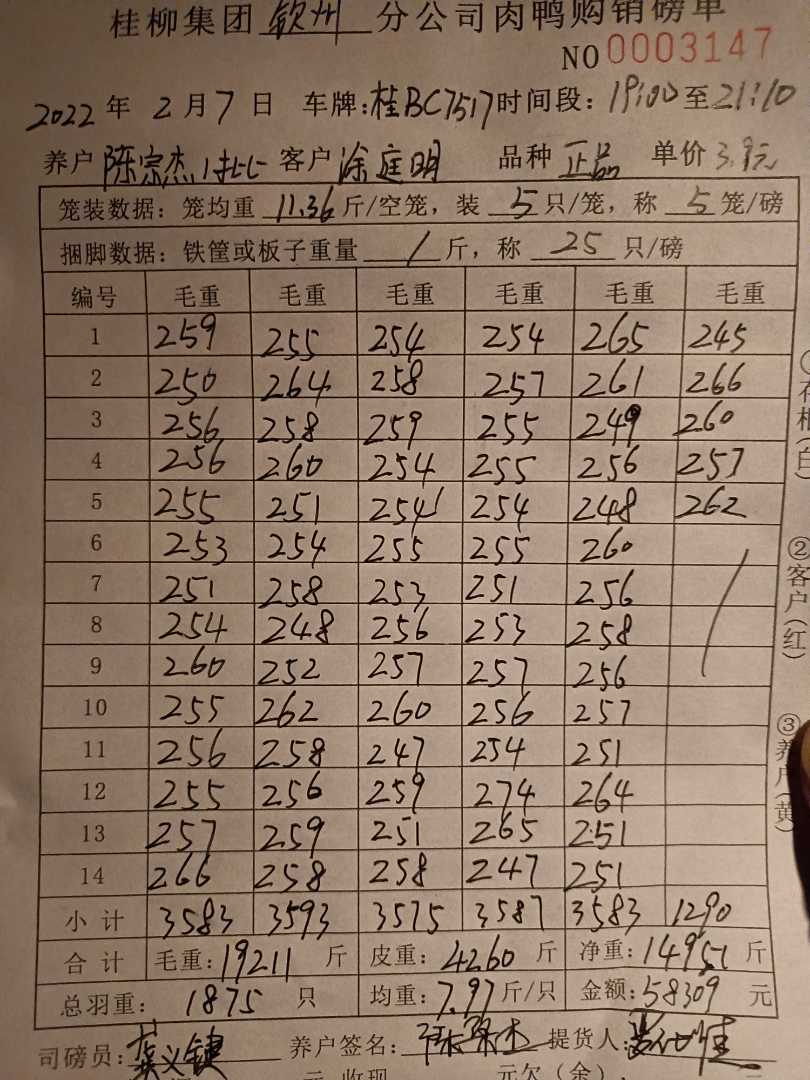 桂柳集团 钦州 分公司肉鸭购销磅单
NO 0003147
2022 年 2 月 7 日 车牌:桂BC7517 时间段:19:00 至 21:10
养户 陈宗杰 客户 涂庭明 品种 正品 单价 3.9元
笼装数据:笼均重 11.36 斤/空笼,装 5 只/笼,称 5 笼/磅
捆脚数据:铁筐或板子重量 / 斤,称 25 只/磅
编号 毛重 毛重 毛重 毛重 毛重 毛重
1 259 255 254 254 265 245
2 250 264 258 257 261 266
3 256 258 259 255 249 260
4 256 260 254 255 256 257
5 255 251 254 254 248 262
6 253 254 255 255 260
7 251 258 253 251 256
8 254 248 256 253 258
9 260 252 257 257 256
10 255 262 260 256 257
11 256 258 247 254 251
12 255 256 259 274 264
13 257 259 251 265 251
14 266 258 258 247 251
小计 3583 3593 3575 3587 3583 1290
合计 毛重:19211 斤 皮重:4260 斤 净重:14951 斤
总羽重: 1875 只 均重:7.97 斤/只 金额:58309 元
司磅员: 养户签名: 提货人:
元 收现 元欠(余)
①存根(白)
②客户(红)
③养户(黄)